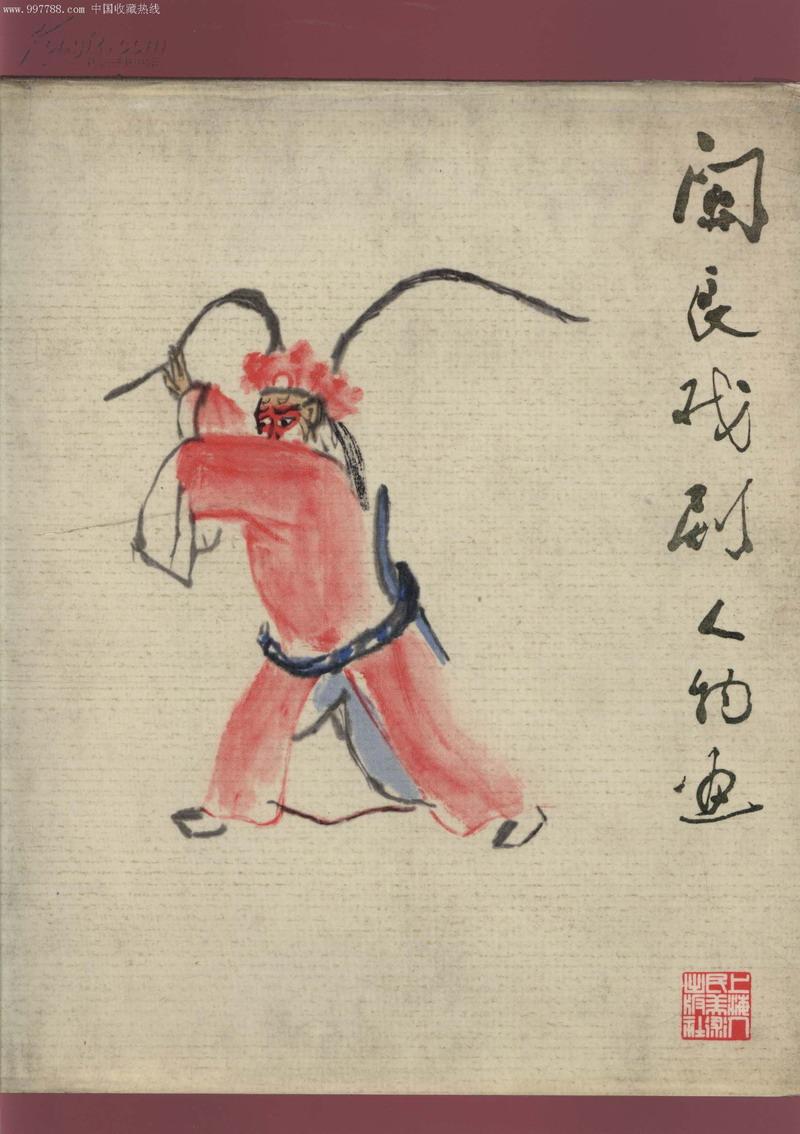 www.997788.com 中国收藏热线
关良戏剧人物画
上海人民美术出版社